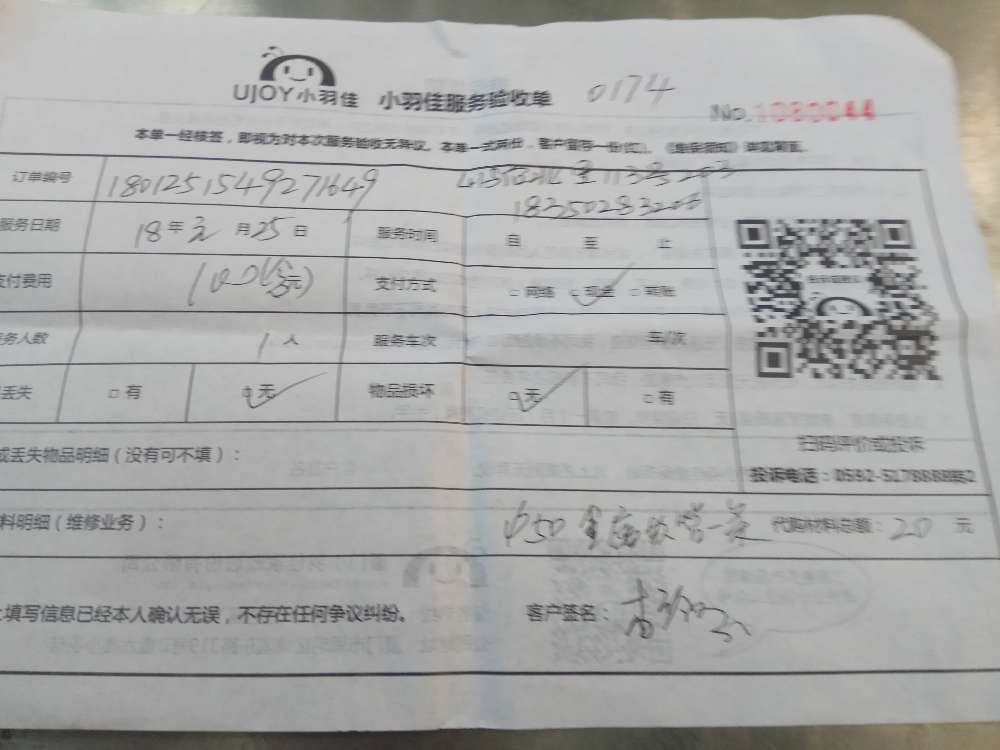 UJOY小羽佳 小羽佳服务验收单 0174
No.1080044
本单一经核签，即视为对本次服务验收无异议。本单一式两份，客户留存一份(红)。
订单编号 1801251549271649
113号203
服务日期 18年元月25日 服务时间 自 至 止
支付费用 支付方式 □网络 □现金 □转账
务人数 1人 服务车次 车/次
丢失 □有 □无 物品损坏 □无 □有
或丢失物品明细（没有可不填）：
扫码评价或投诉
投诉电话：0592-5178888转2
料明细（维修业务）： 代购材料总额：20元
填写信息已经本人确认无误，不存在任何争议纠纷。 客户签名：